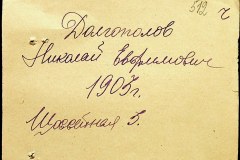 519 ч
Долгополов
Николай Евфимович
1905г.
Шоссейная 5.